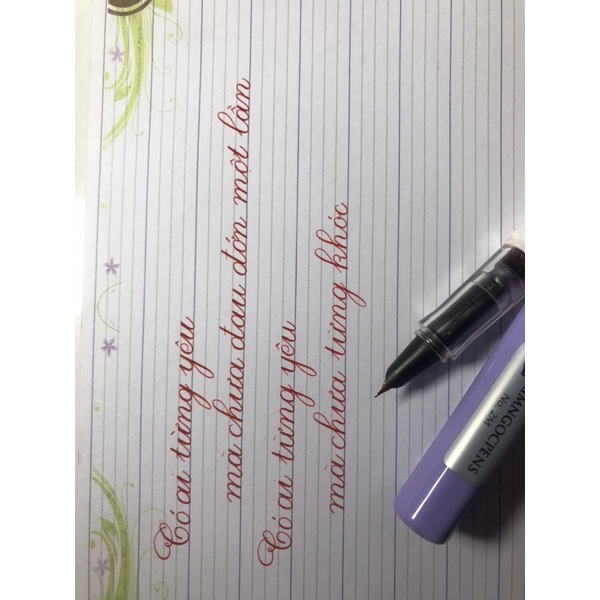 Có ai từng yêu
mà chưa đau đớn một lần
Có ai từng yêu
mà chưa từng khóc
IMNGOCPENS
No. 2M